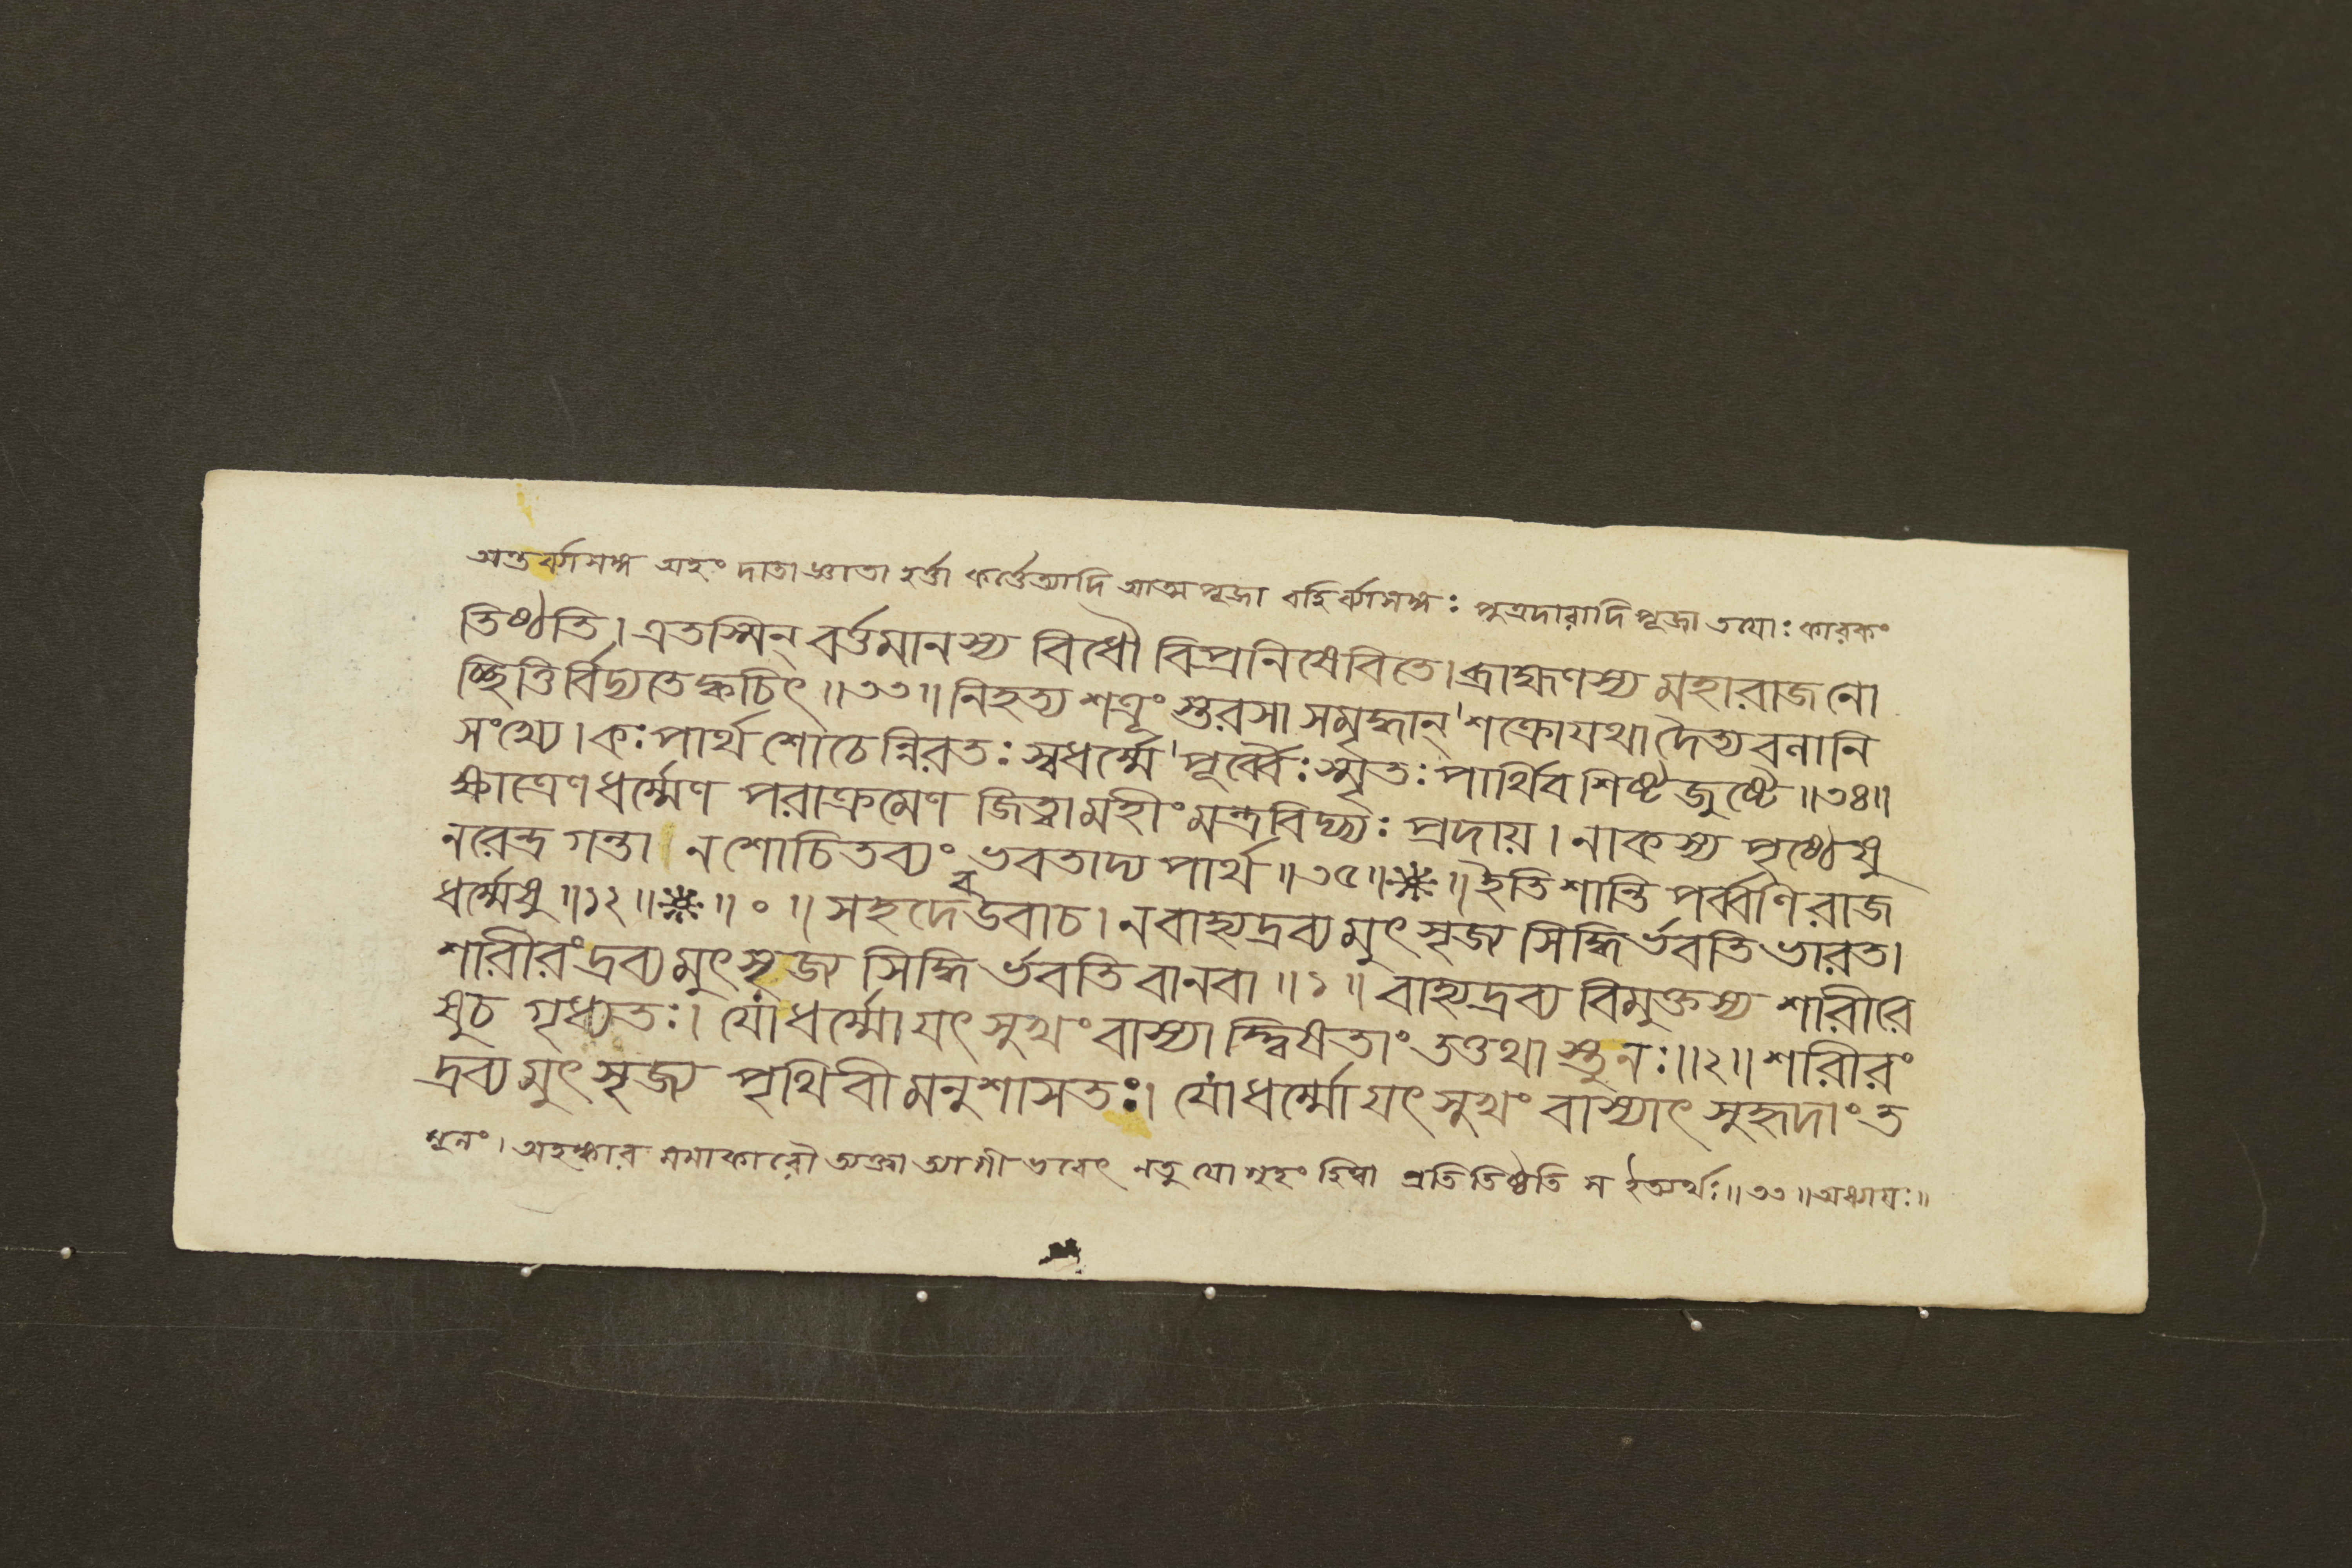 অন্তর্ব্বাসঙ্গ অহং দাতা জ্ঞাতা হর্ত্তা কর্ত্তেত্যাদি আত্ম পূজা বহির্ব্বাসঙ্গঃ পুত্রদারাদি পূজা তযোঃ কারকং
তিষ্ঠতি। এতস্মিন্ বর্ত্তমানস্য বিধৌ বিপ্রনিষেবিতে। ব্রাহ্মণস্য মহারাজ নো
চ্ছিত্তির্বিদ্যতে ক্বচিৎ॥৩৩॥ নিহত্য শত্রূংস্তরসা সমৃদ্ধান্ শক্রো যথা দৈত্য বলানি
সংখ্যে। কঃ পার্থ শোচেন্নিরতঃ স্বধর্ম্মে পূর্ব্বৈঃ স্মৃতঃ পার্থিব শিষ্ট জুষ্টে॥৩৪॥
ক্ষাত্রেণ ধর্ম্মেণ পরাক্রমেণ জিত্বা মহীং মন্ত্রবিদ্ভ্যঃ প্রদায়। নাকস্য পৃষ্ঠেষু
নরেন্দ্র গন্তা। ন শোচিতব্যং ভবতাদ্য পার্থ॥৩৫॥ ॥ ইতি শান্তি পর্ব্বণি রাজ
ধর্ম্মেষু॥১২॥ ॥০॥ সহদেব উবাচ। ন বাহ্য দ্রব্য মুৎসৃজ্য সিদ্ধির্ভবতি ভারত।
শারীরং দ্রব্য মুৎসৃজ্য সিদ্ধির্ভবতি বা ন বা॥১॥ বাহ্য দ্রব্য বিমুক্তস্য শারীরে
ষুচ গৃধ্যতঃ। যো ধর্ম্মো যৎ সুখং বা স্যা দ্দ্বিষতাং তত্তথাস্তু নঃ॥২॥ শরীরং
দ্রব্য মুৎসৃজ্য পৃথিবী মনুশাসতঃ। যো ধর্ম্মো যৎ সুখং বা স্যাৎ সুহৃদাং ত
মূলং। অহঙ্কার মমাকারৌ ত্যক্ত্বা ত্যাগী ভবেৎ নতু যো গৃহং হিত্বা প্রতি তিষ্ঠতি স ইত্যর্থঃ॥৩৩॥ অধ্যাযঃ॥